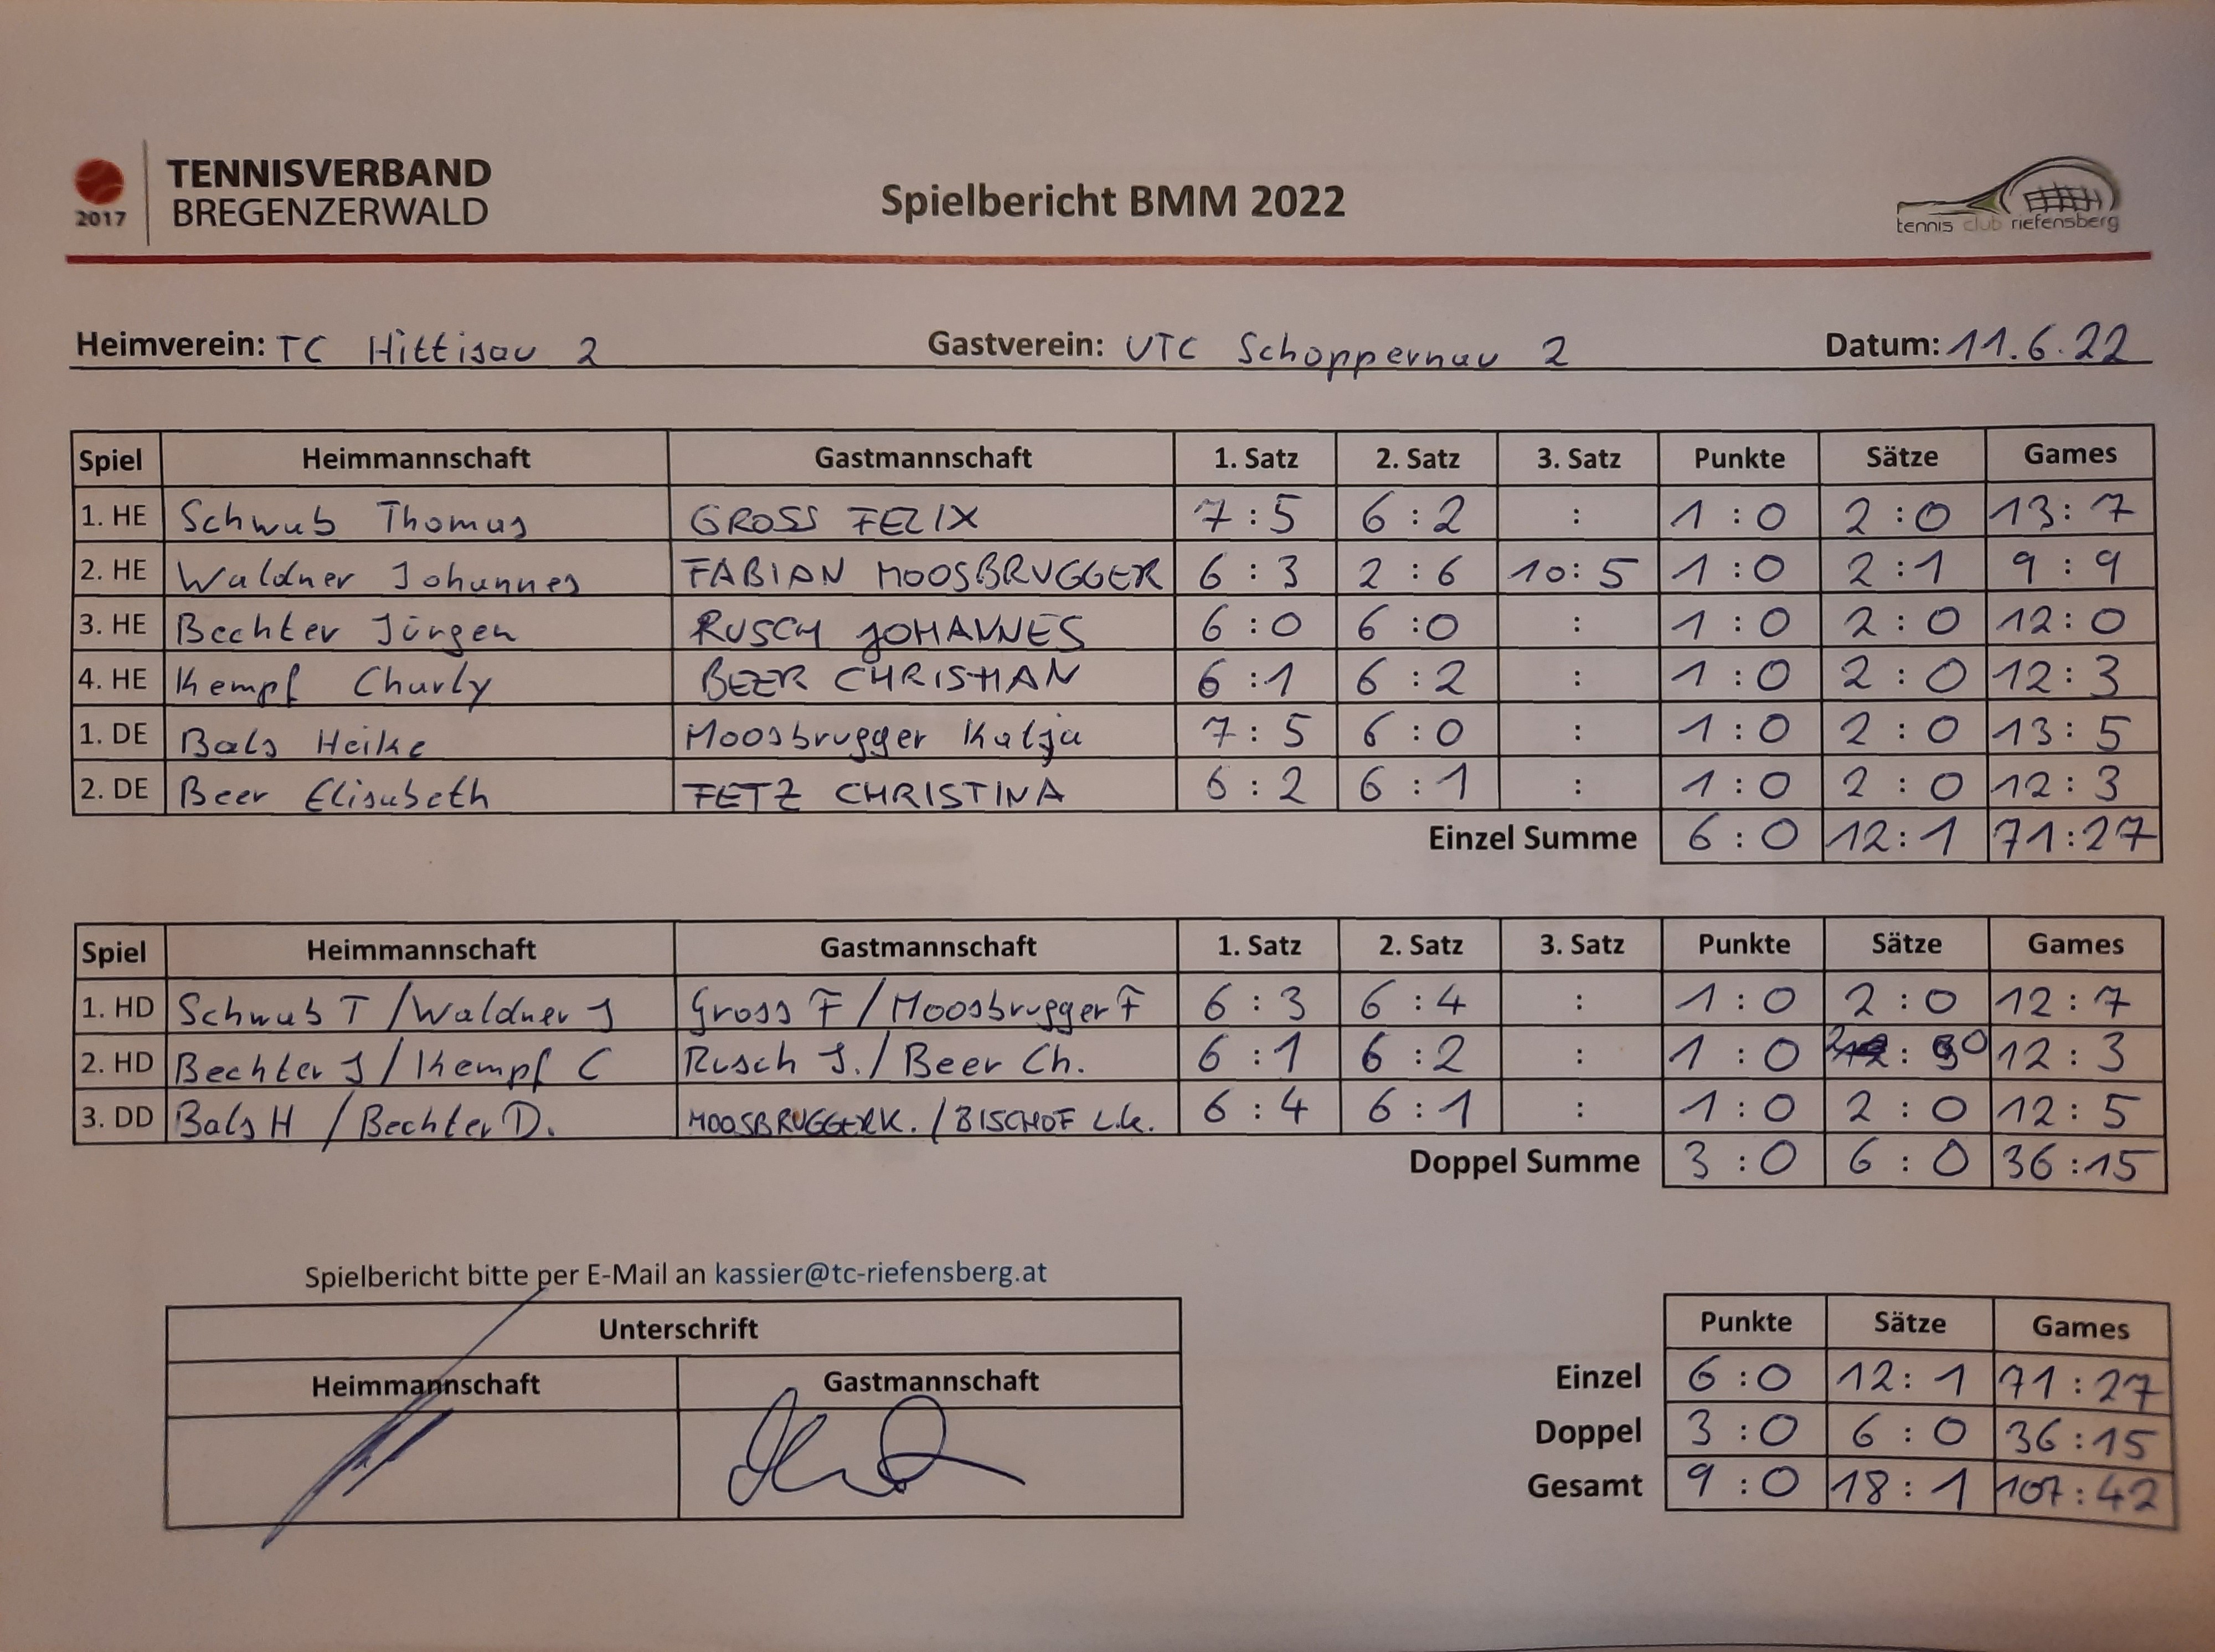 TENNISVERBAND
BREGENZERWALD
2017
Spielbericht BMM 2022
tennis club riefensberg
Heimverein: TC Hittisau 2 Gastverein: UTC Schoppernau 2 Datum: 11.6.22
Spiel Heimmannschaft Gastmannschaft 1. Satz 2. Satz 3. Satz Punkte Sätze Games
1. HE Schwab Thomas GROSS FELIX 7:5 6:2 : 1:0 2:0 13:7
2. HE Waldner Johannes FABIAN MOOSBRUGGER 6:3 2:6 10:5 1:0 2:1 9:9
3. HE Bechter Jürgen RUSCH JOHANNES 6:0 6:0 : 1:0 2:0 12:0
4. HE Kempf Charly BEER CHRISTIAN 6:1 6:2 : 1:0 2:0 12:3
1. DE Bals Heike Moosbrugger Katja 7:5 6:0 : 1:0 2:0 13:5
2. DE Beer Elisabeth FETZ CHRISTINA 6:2 6:1 : 1:0 2:0 12:3
Einzel Summe 6:0 12:1 71:27
Spiel Heimmannschaft Gastmannschaft 1. Satz 2. Satz 3. Satz Punkte Sätze Games
1. HD Schwab T / Waldner J Gross F / Moosbrugger F 6:3 6:4 : 1:0 2:0 12:7
2. HD Bechter J / Kempf C Rusch J. / Beer Ch. 6:1 6:2 : 1:0 2:0 12:3
3. DD Bals H / Bechter D. MOOSBRUGGER K. / BISCHOF 6:4 6:1 : 1:0 2:0 12:5
Doppel Summe 3:0 6:0 36:15
Spielbericht bitte per E-Mail an kassier@tc-riefensberg.at
Unterschrift
Heimmannschaft Gastmannschaft
Punkte Sätze Games
Einzel 6:0 12:1 71:27
Doppel 3:0 6:0 36:15
Gesamt 9:0 18:1 107:42